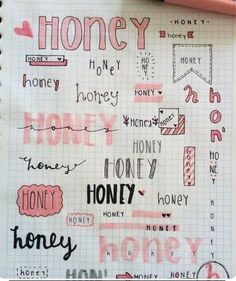 HONEY
HONEY
honey
HONEY
HONEY
honey
HONEY
HONEY
honey
honey
h
on'
HONEY
honey
HONEY
honey
honey
HONEY
honey
HONEY
HONEY
HONEY
HONEY
honey
HONEY
HONEY
HONEY
honey
HONEY
honey
honey
HONEY
honey
h